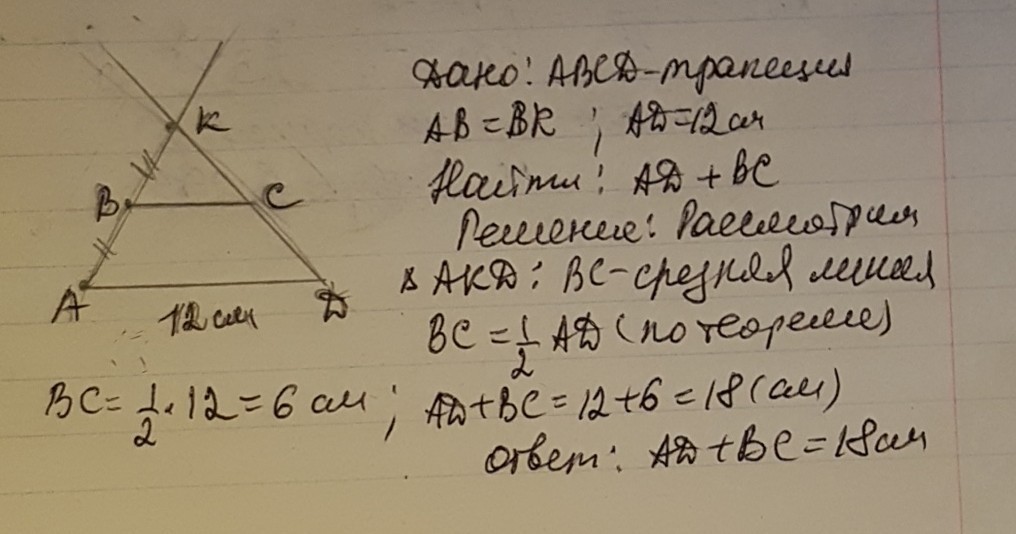 K
B
C
A
D
12 см
Дано: ABCD-трапеция
AB = BK ; AD=12см
Найти: AD + BC
Решение: Рассмотрим
∆ AKD: BC-средняя линия
BC = 1/2 AD (по теореме)
BC = 1/2 · 12 = 6 см ; AD+BC = 12+6 = 18 (см)
Ответ: AD + BC = 18см